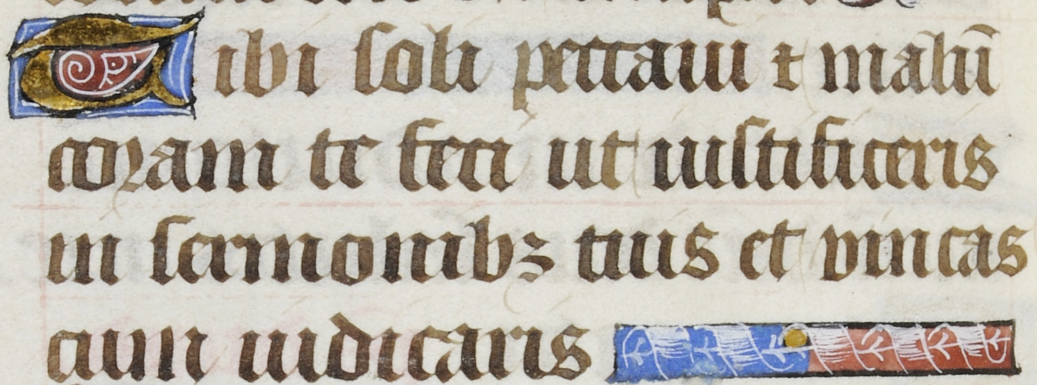 Tibi soli peccaui ⁊ malū
coram te feci ut iustificeris
in sermonibꝫ tuis et vincas
cum iudicaris